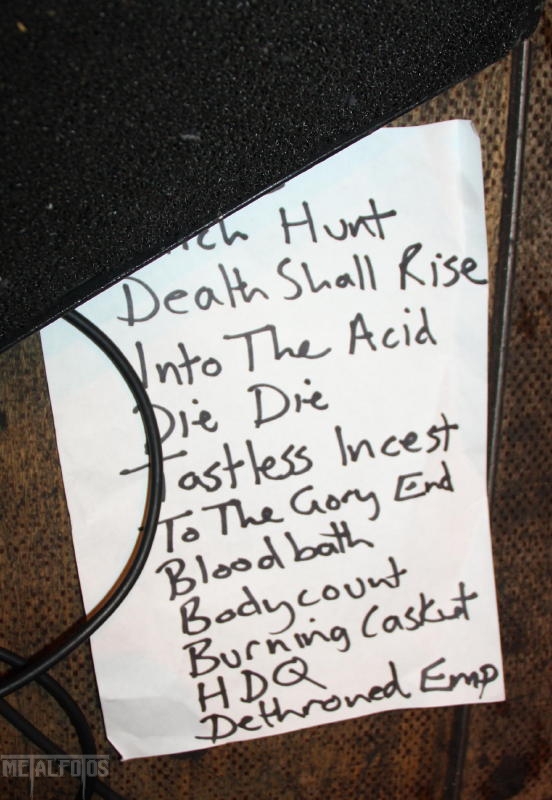 Hunt
Death Shall Rise
Into The Acid
Die Die
Tastless Incest
To The Gory End
Bloodbath
Bodycount
Burning Caskut
HDQ
Dethroned Emp
METALFOTOS